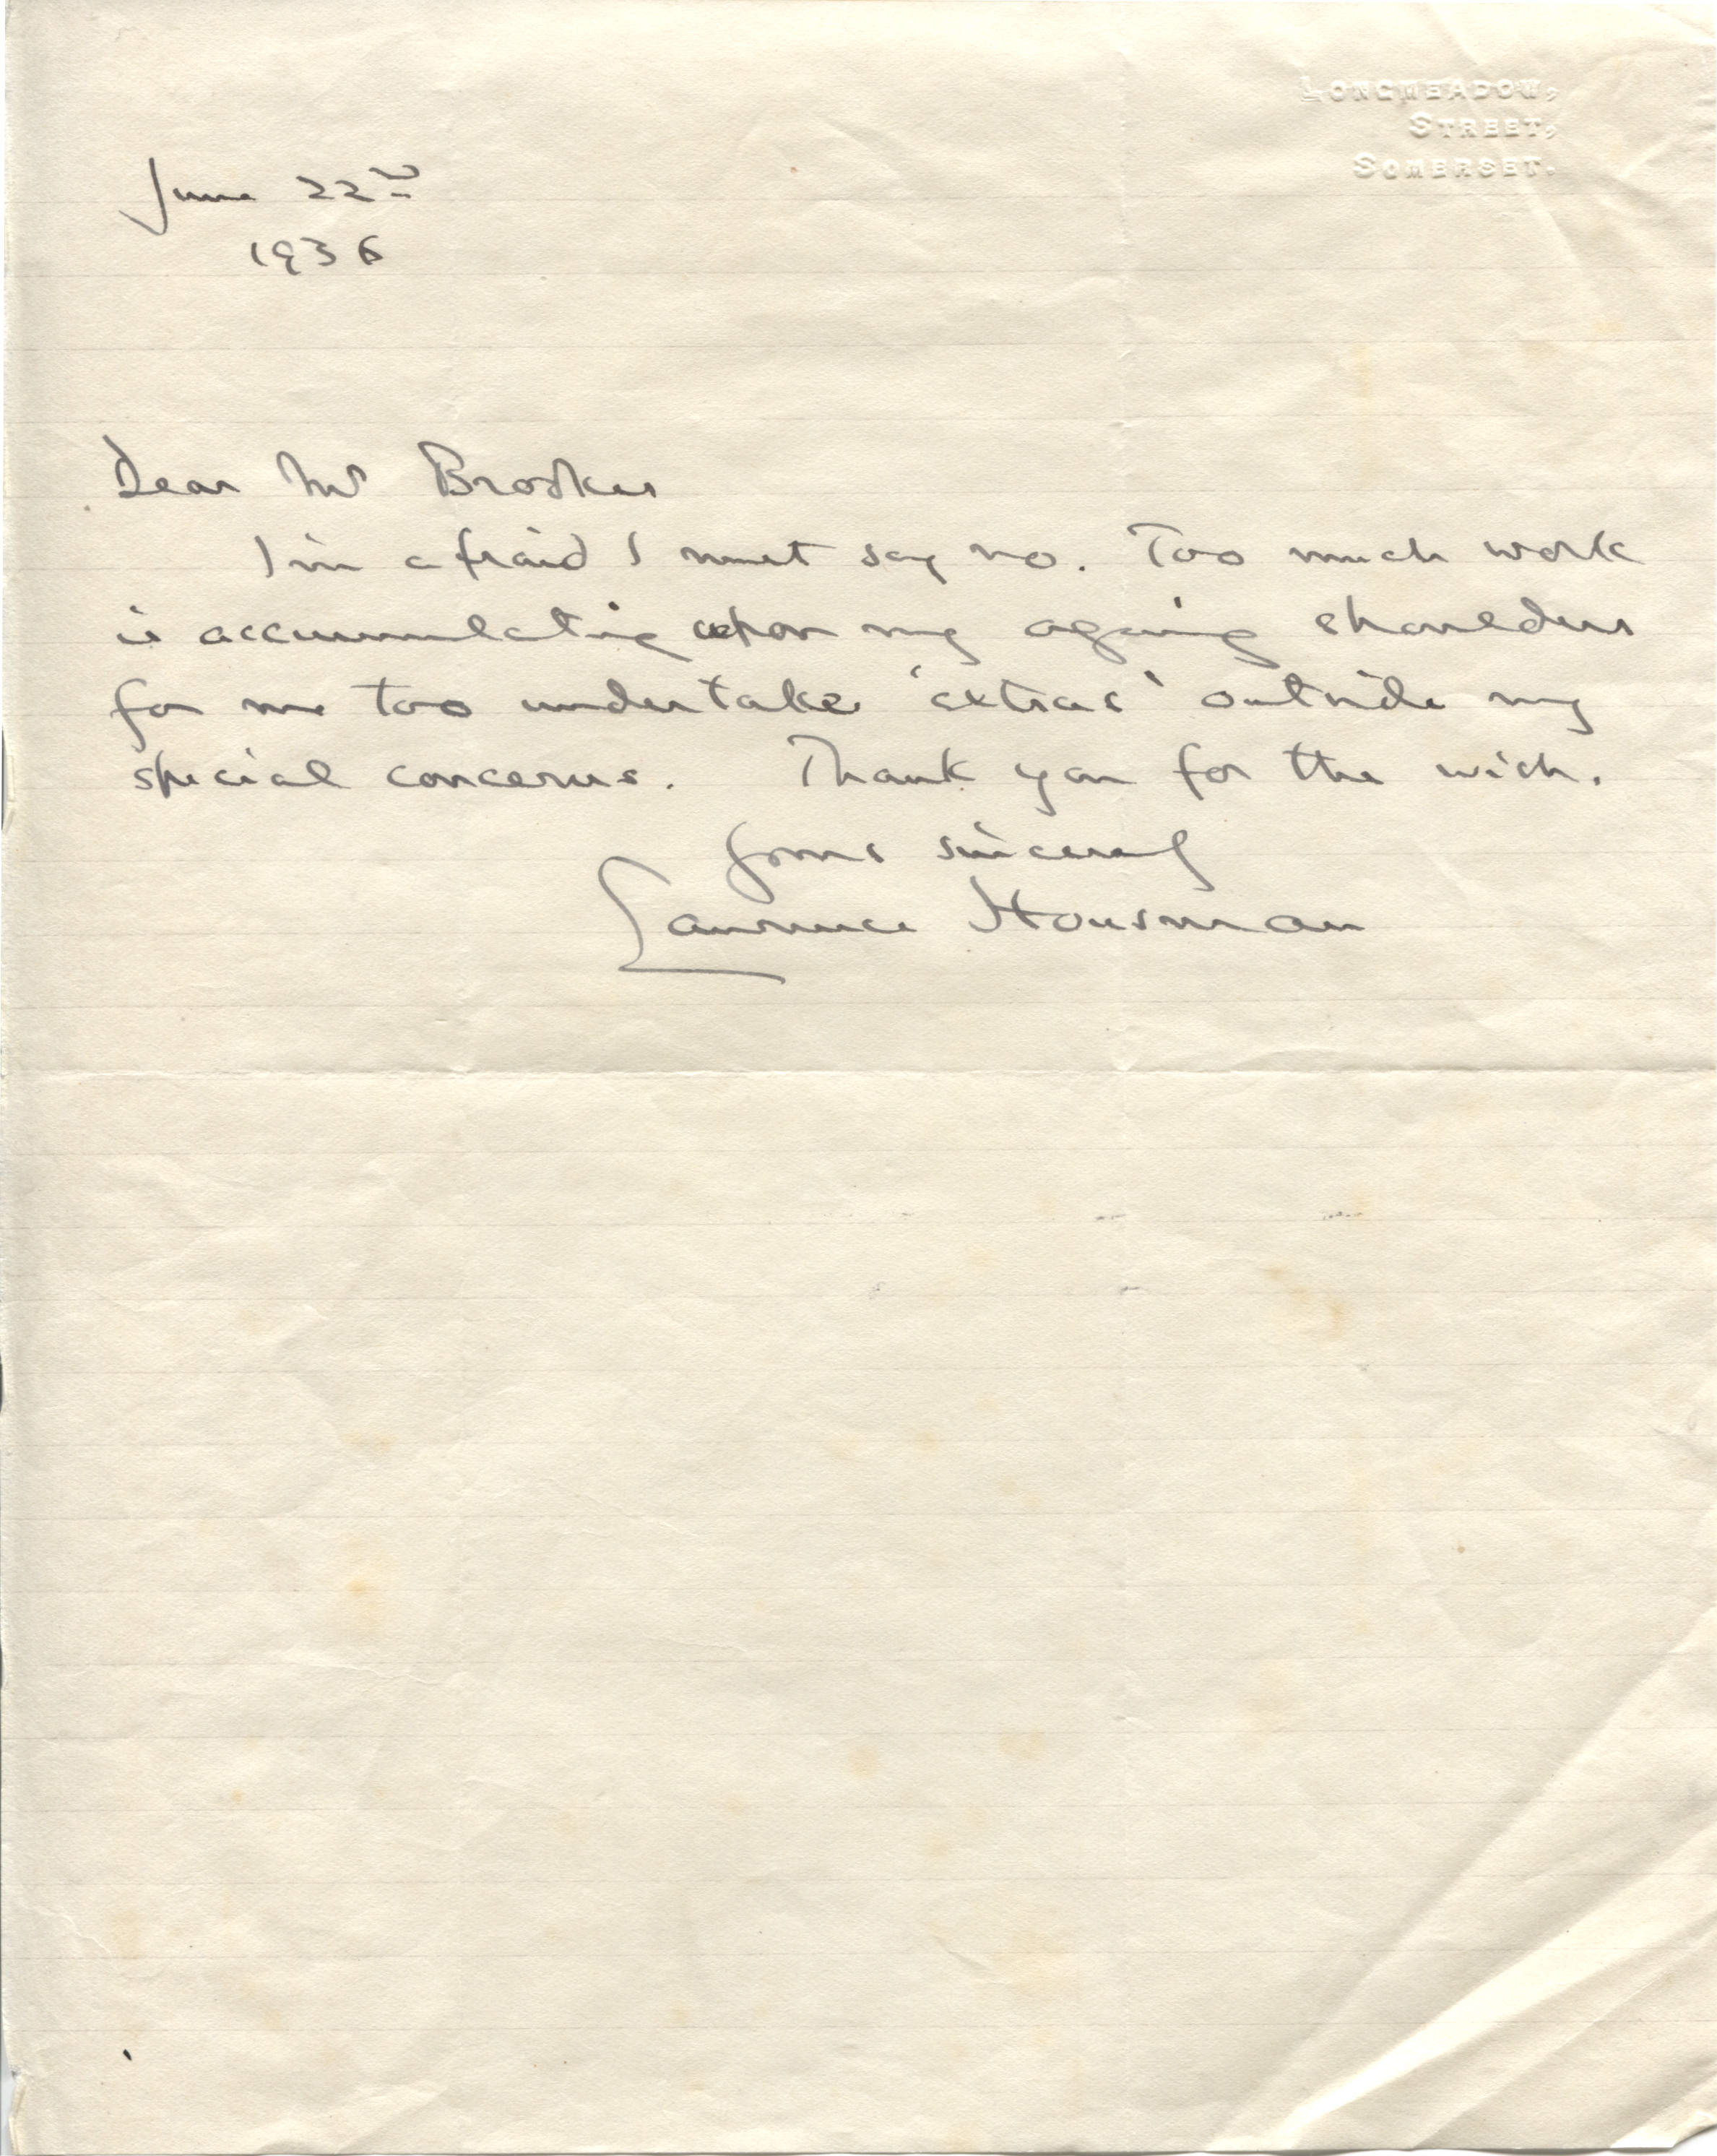 LONGMEADOW,
STREET,
SOMERSET.
June 22nd
1936
Dear Mr Brooker
I'm afraid I must say no. Too much work
is accumulating upon my ageing shoulders
for me too undertake 'extras' outside my
special concerns. Thank you for the wish.
Yours sincerely
Laurence Housman